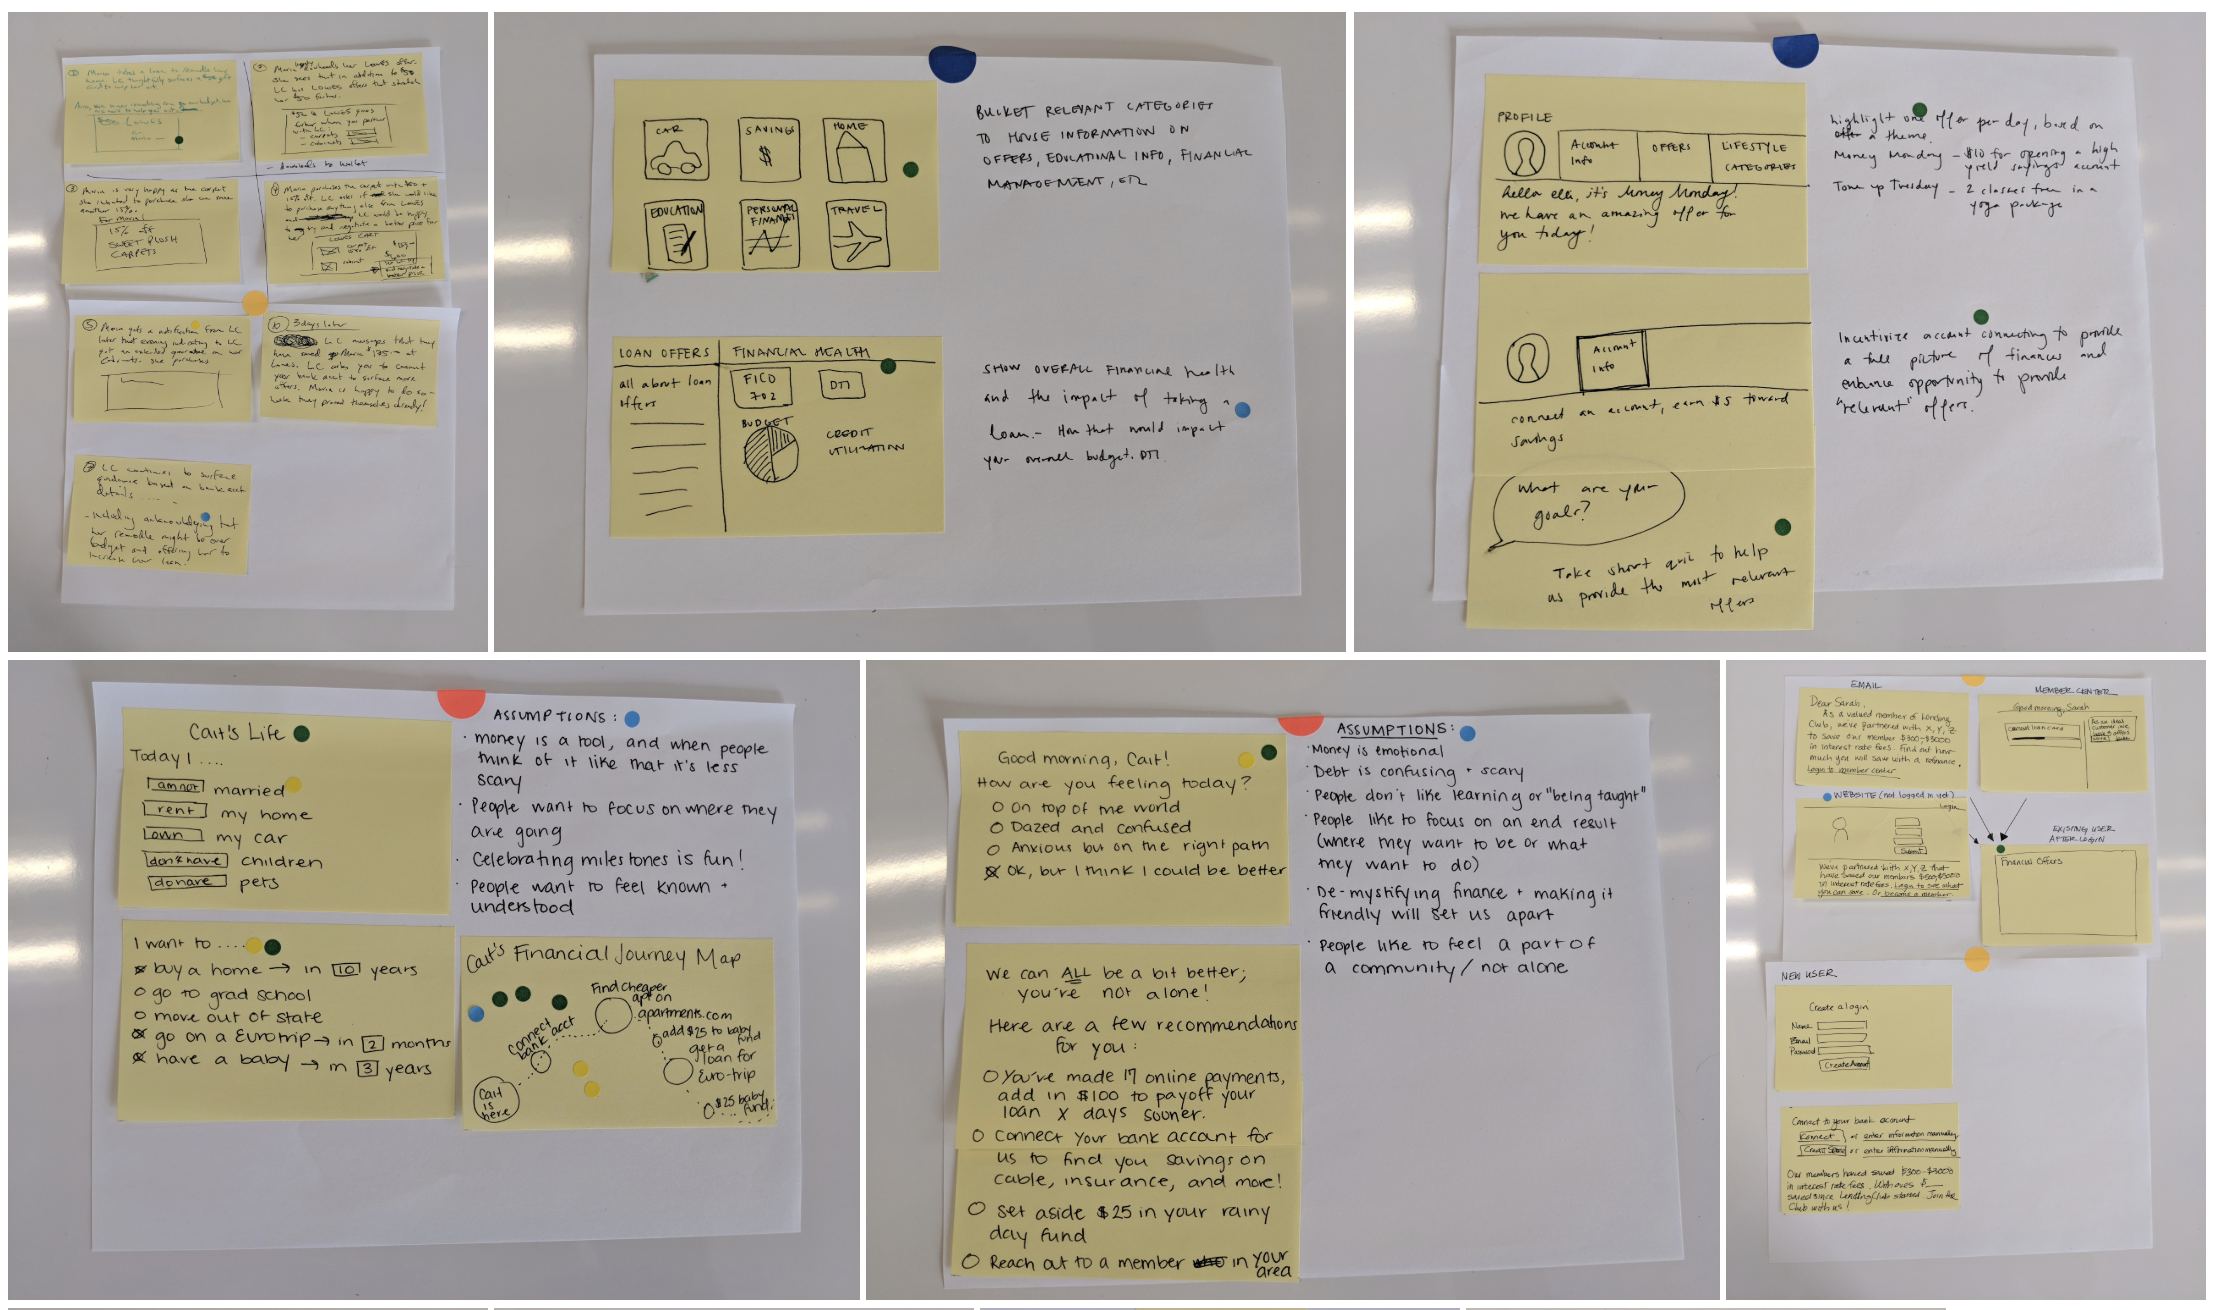 ① Maria takes a loan to remodel her
home. LC thoughtfully surfaces a $50 gift
card to help her out.
$50 LOWES
② Maria happily downloads her Lowes offer.
She sees that in addition to $50
LC has LOWES offers that stretch
her $50 further.
with LC:
- carpets
- cabinets
- downloads to wallet
③ Maria is very happy as the carpet
she intended to purchase she can save
another 15%.
For Maria!
15% off
SWEET PLUSH
CARPETS
④ Maria purchases the carpet with $50 +
15% off. LC asks if she would like
to purchase anything else from Lowes
and LC would be happy
to try and negotiate a better price for
her
LOWES CART
⑤ Maria gets a notification from LC
later that evening indicating to LC
got an extended guarantee on her
Cabinets. She purchases
⑥ 3 days later
LC messages that they
have saved Maria $175 — at
Lowes. LC asks you to connect
your bank acct to surface more
offers. Maria is happy to do so —
they proved themselves already!
⑦ LC continues to surface
guidance based on bank acct
details .....
- including acknowledging that
her remodle might be over
budget and offering her to
increase her loan!
CAR
SAVINGS
$
HOME
EDUCATION
PERSONAL
FINANCE
TRAVEL
BUCKET RELEVANT CATEGORIES
TO HOUSE INFORMATION ON
OFFERS, EDUCATIONAL INFO, FINANCIAL
MANAGEMENT, ETC
LOAN OFFERS
all about loan
offers
FINANCIAL HEALTH
FICO
702
DTI
BUDGET
CREDIT
UTILIZATION
SHOW OVERALL FINANCIAL health
and the impact of taking a
loan. - How that would impact
your overall budget. DTI
PROFILE
Account
Info
OFFERS
LIFESTYLE
CATEGORIES
hello ella, it's Money Monday!
we have an amazing offer for
you today!
highlight one offer per day, based on
a theme.
Money Monday - $10 for opening a high
yield savings account
Tone up Tuesday - 2 classes free in a
yoga package
Account
Info
connect an account, earn $5 toward
savings
Incentivize account connecting to provide
a full picture of finances and
enhance opportunity to provide
"relevant" offers.
What are your
goals?
Take short quiz to help
us provide the most relevant
offers
Cait's Life
Today I ....
am not married
rent my home
own my car
don't have children
do have pets
ASSUMPTIONS:
· money is a tool, and when people
think of it like that it's less
scary
· People want to focus on where they
are going
· Celebrating milestones is fun!
· People want to feel known +
understood
I want to ....
buy a home → in 10 years
go to grad school
move out of state
go on a Eurotrip → in 2 months
have a baby → in 3 years
Cait's Financial Journey Map
Cait
is
here
connect
bank acct
Find cheaper
apt on
apartments.com
add $25 to baby
fund
get a
loan for
Euro-trip
$25 baby
fund
Good morning, Cait!
How are you feeling today?
On top of the world
Dazed and confused
Anxious but on the right path
OK, but I think I could be better
We can ALL be a bit better;
you're not alone!
Here are a few recommendations
for you:
You've made 17 online payments,
add in $100 to payoff your
loan X days sooner.
Connect your bank account for
us to find you savings on
cable, insurance, and more!
Set aside $25 in your rainy
day fund
Reach out to a member in your
area
ASSUMPTIONS:
· Money is emotional
· Debt is confusing + scary
· People don't like learning or "being taught"
· People like to focus on an end result
(where they want to be or what
they want to do)
· De-mystifying finance + making it
friendly will set us apart
· People like to feel a part of
a community / not alone
EMAIL
Dear Sarah,
As a valued member of Lending
Club, we've partnered with X, Y, Z
to save our member $300-$3000
in interest rate fees. Find out how
much you will save with a refinance.
Login to member center
MEMBER CENTER
Good morning, Sarah
WEBSITE (not logged in yet)
Login
Submit
We've partnered with X, Y, Z that
have saved our members $300-$3000
in interest rate fees. Login to see what
you can save. Or become a member.
EXISTING USER
AFTER LOGIN
Financial Offers
NEW USER
Create a login
Name
Email
Password
Create Account
Connect to your bank account
Connect or enter information manually
Credit Score or enter information manually
Our members haved saved $300-$3000
in interest rate fees. With over $__
saved since Lending Club started. Join the
Club with us!